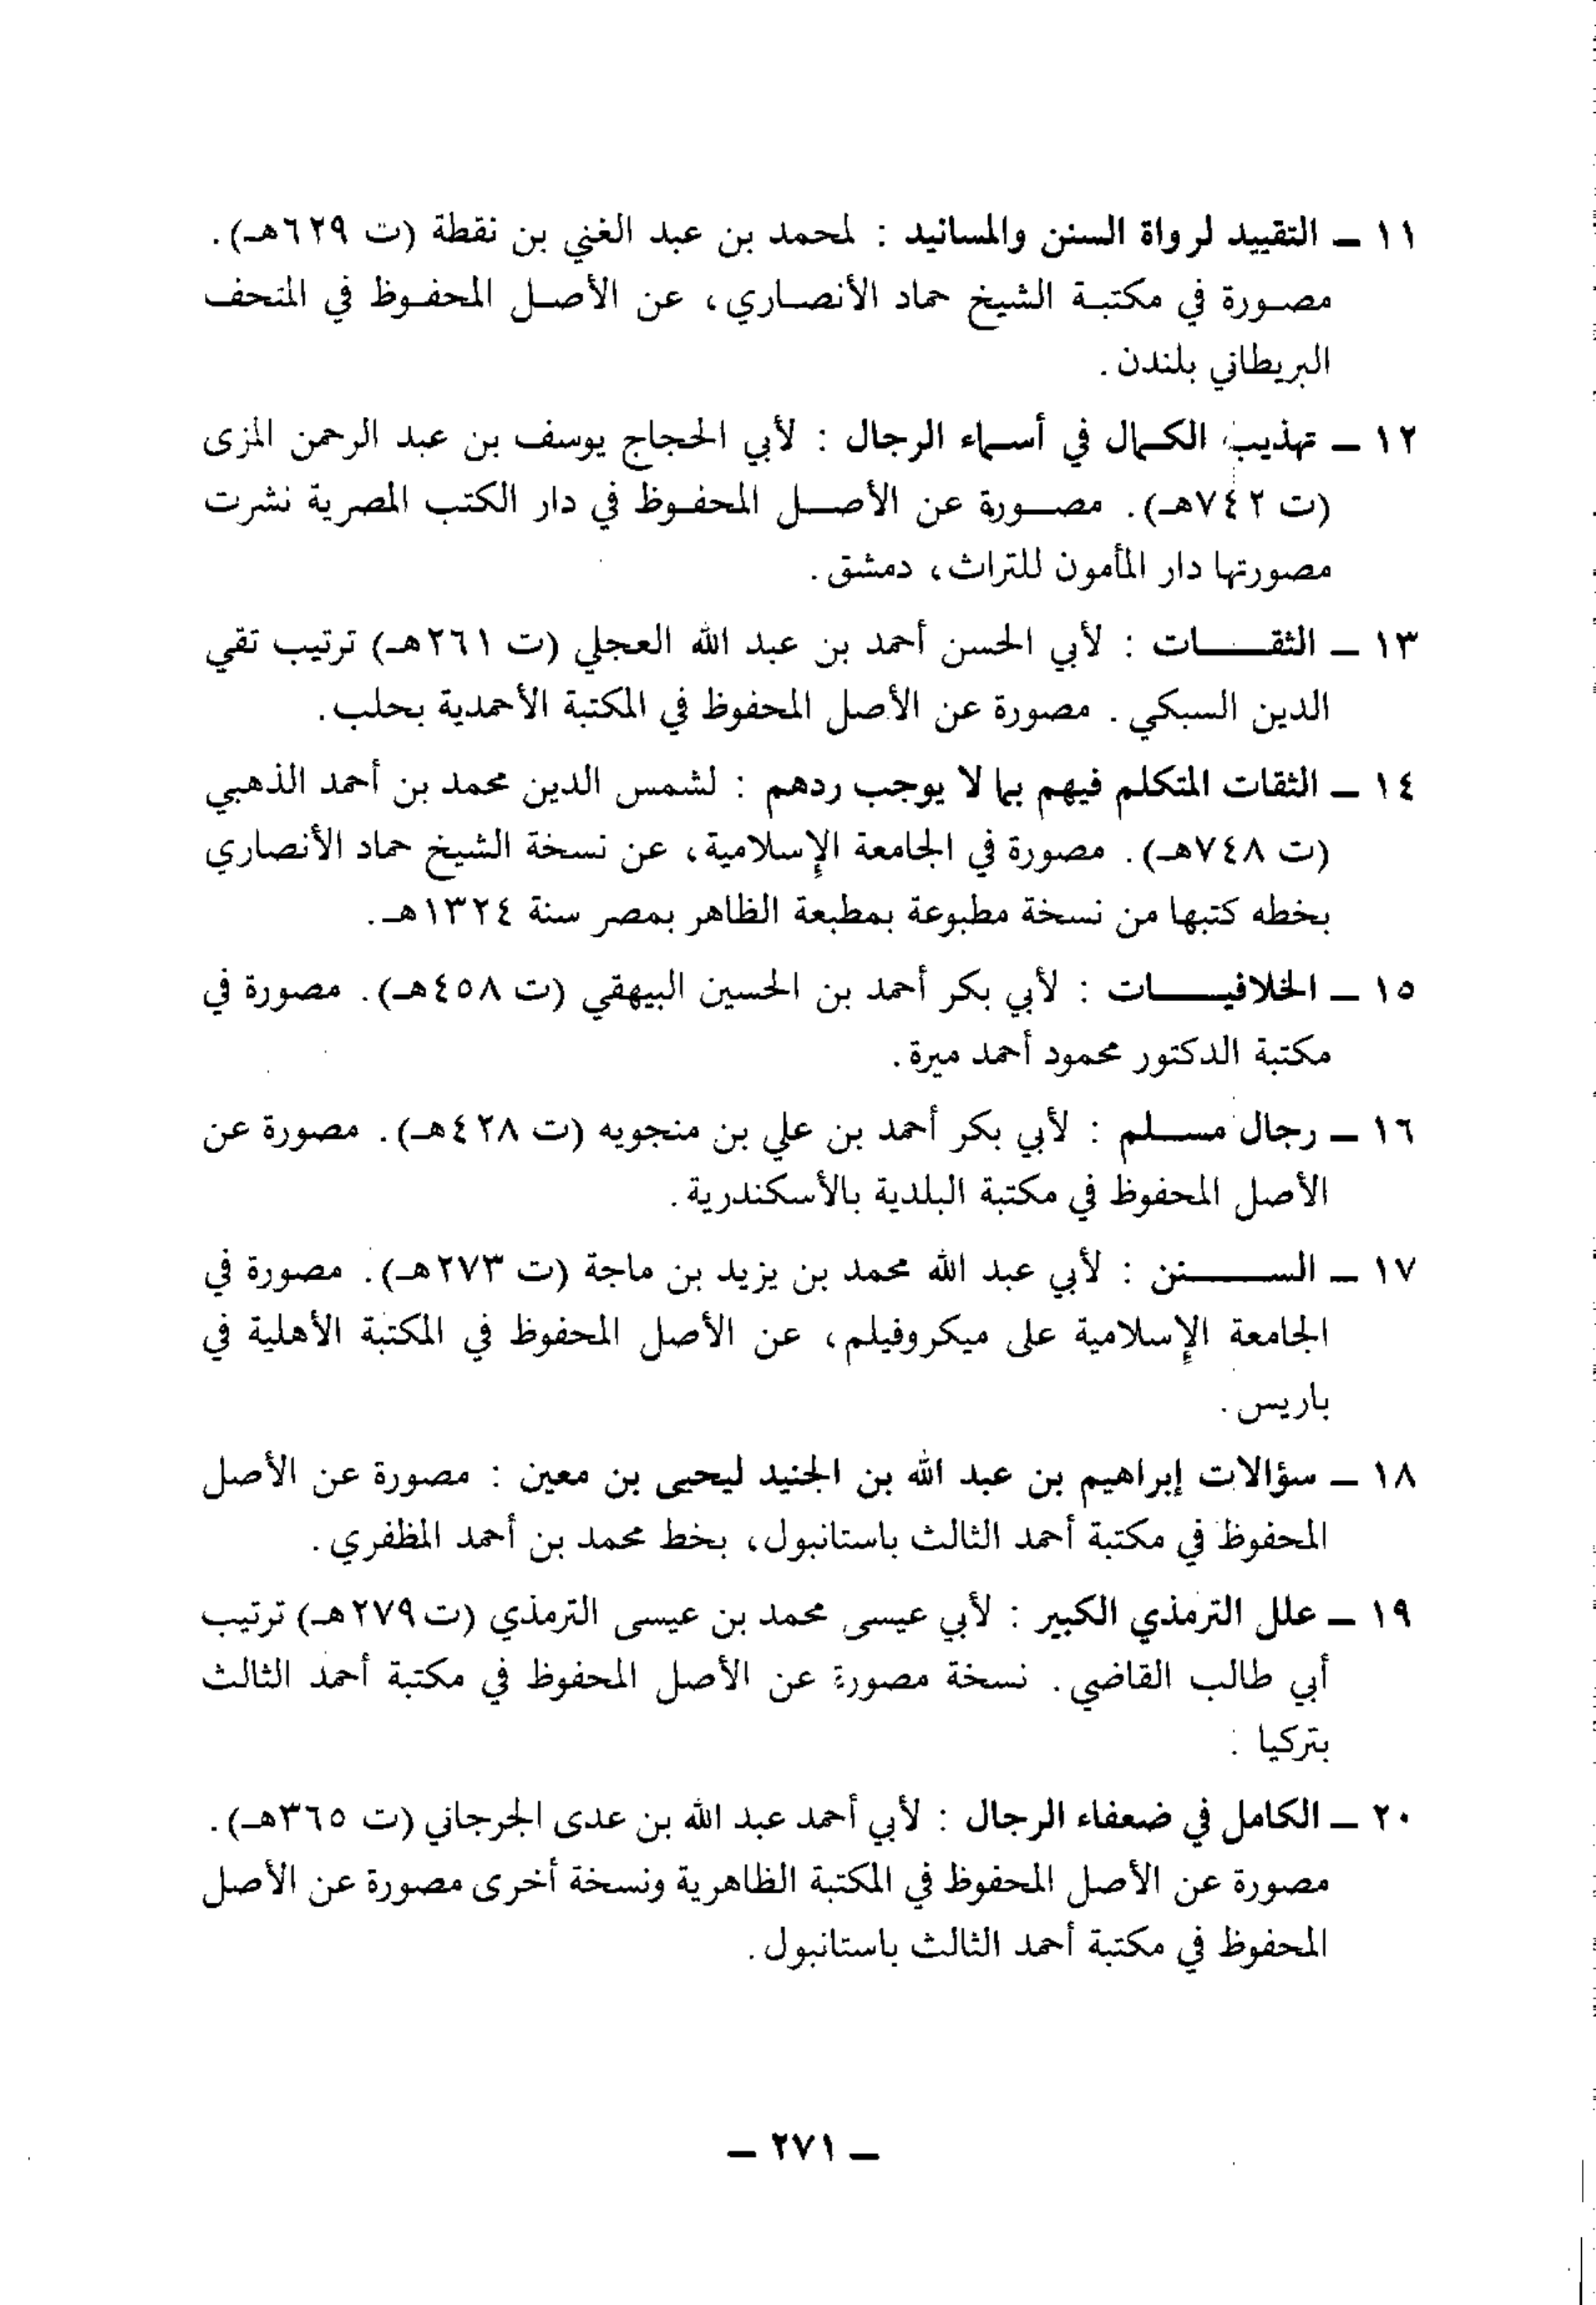 ١١ ــ التقييد لرواة السنن والمسانيد : لمحمد بن عبد الغني بن نقطة (ت ٦٢٩هـ).
مصورة في مكتبة الشيخ حماد الأنصاري، عن الأصل المحفوظ في المتحف
البريطاني بلندن.
١٢ ــ تهذيب الكمال في أسماء الرجال : لأبي الحجاج يوسف بن عبد الرحمن المزى
(ت ٧٤٢هـ). مصورة عن الأصل المحفوظ في دار الكتب المصرية نشرت
مصورتها دار المأمون للتراث، دمشق.
١٣ ــ الثقات : لأبي الحسن أحمد بن عبد الله العجلي (ت ٢٦١هـ) ترتيب تقي
الدين السبكي. مصورة عن الأصل المحفوظ في المكتبة الأحمدية بحلب.
١٤ ــ الثقات المتكلم فيهم بما لا يوجب ردهم : لشمس الدين محمد بن أحمد الذهبي
(ت ٧٤٨هـ). مصورة في الجامعة الإسلامية، عن نسخة الشيخ حماد الأنصاري
بخطه كتبها من نسخة مطبوعة بمطبعة الظاهر بمصر سنة ١٣٢٤هـ.
١٥ ــ الخلافيات : لأبي بكر أحمد بن الحسين البيهقي (ت ٤٥٨هـ). مصورة في
مكتبة الدكتور محمود أحمد ميرة.
١٦ ــ رجال مسلم : لأبي بكر أحمد بن علي بن منجويه (ت ٤٢٨هـ). مصورة عن
الأصل المحفوظ في مكتبة البلدية بالأسكندرية.
١٧ ــ السنن : لأبي عبد الله محمد بن يزيد بن ماجة (ت ٢٧٣هـ). مصورة في
الجامعة الإسلامية على ميكروفيلم، عن الأصل المحفوظ في المكتبة الأهلية في
باريس.
١٨ ــ سؤالات إبراهيم بن عبد الله بن الجنيد ليحيى بن معين : مصورة عن الأصل
المحفوظ في مكتبة أحمد الثالث باستانبول، بخط محمد بن أحمد المظفري.
١٩ ــ علل الترمذي الكبير : لأبي عيسى محمد بن عيسى الترمذي (ت٢٧٩هـ) ترتيب
أبي طالب القاضي. نسخة مصورة عن الأصل المحفوظ في مكتبة أحمد الثالث
بتركيا :
٢٠ ــ الكامل في ضعفاء الرجال : لأبي أحمد عبد الله بن عدى الجرجاني (ت ٣٦٥هـ).
مصورة عن الأصل المحفوظ في المكتبة الظاهرية ونسخة أخرى مصورة عن الأصل
المحفوظ في مكتبة أحمد الثالث باستانبول.
ــ ٢٧١ ــ